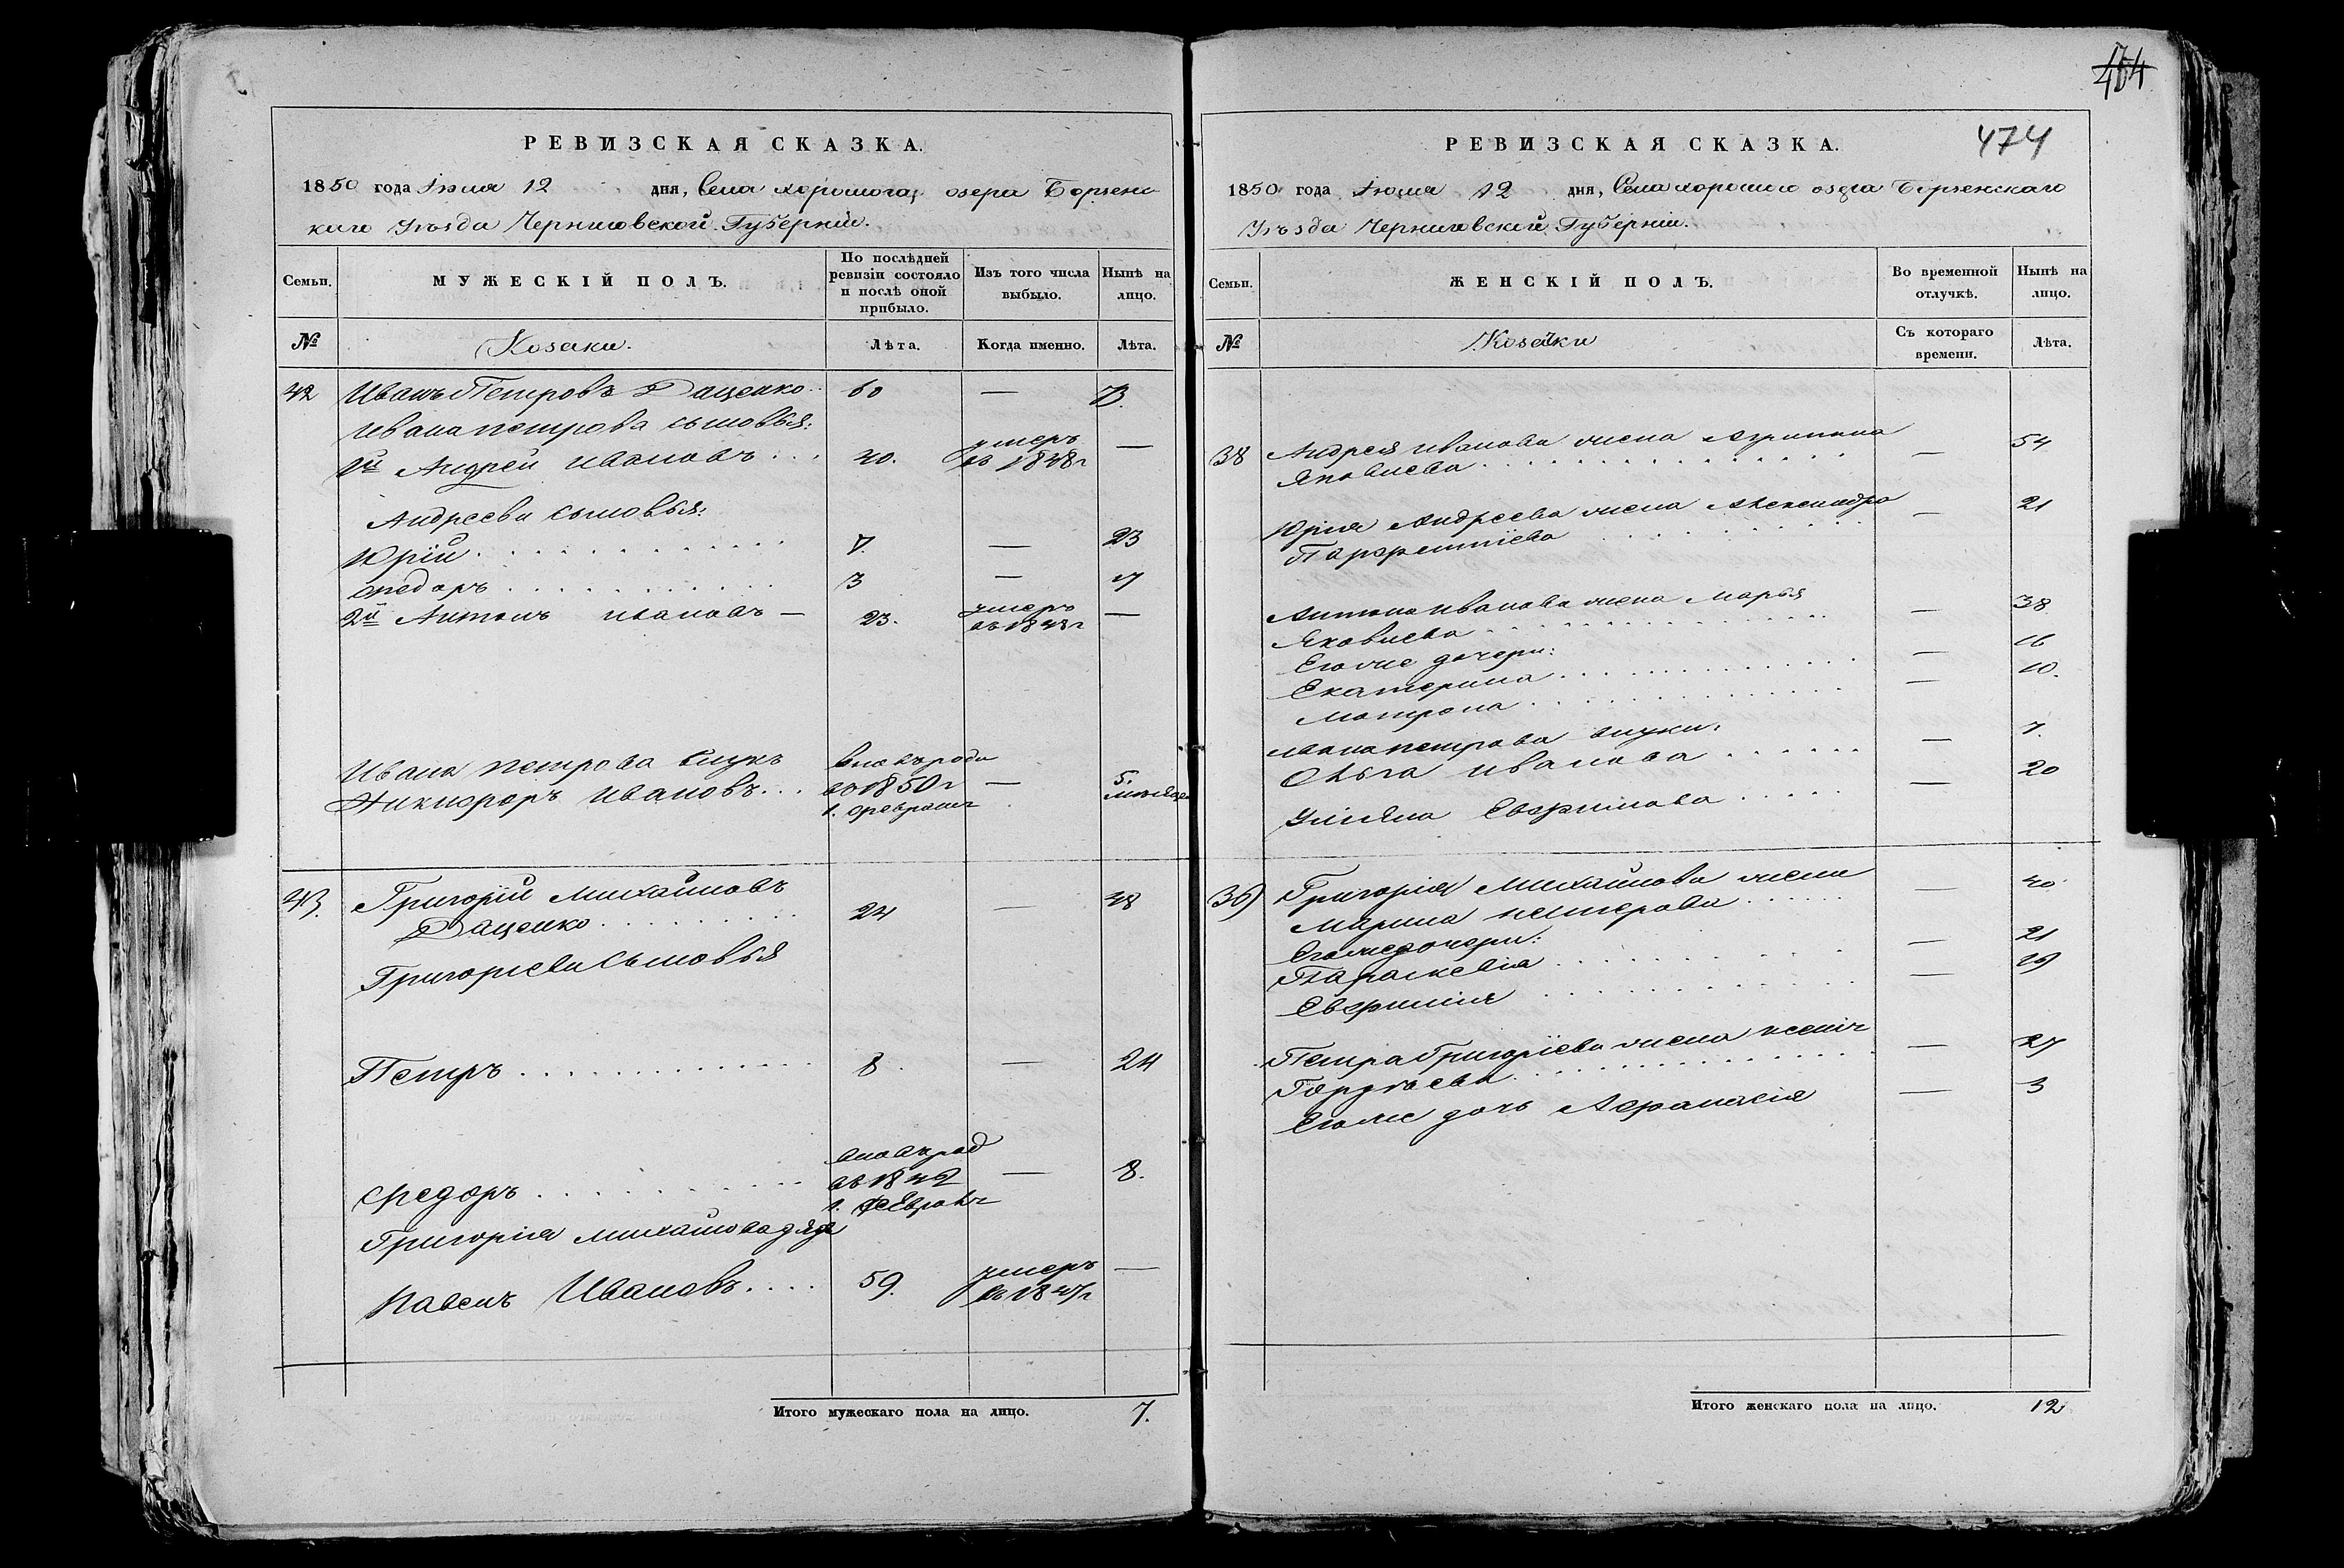 464
РЕВИЗСКАЯ СКАЗКА.
1850 года Іюля 12 дня, Села хорошога озера Борзенс
каго Уѣзда Черниговской Губерніи.
Семьи.
МУЖЕСКІЙ ПОЛЪ.
По послѣдней ревизіи состояло и послѣ оной прибыло.
Изъ того числа выбыло.
Нынѣ на лицо.
№
Козаки.
Лѣта.
Когда именно.
Лѣта.
42 Иванъ Петровъ Даценко 60 — 73.
Ивана петрова сыновья:
1й Андрей Ивановъ . . . 40. умеръ въ 1838г —
Андреева сыновья:
Юрій . . . 7. — 23
Федоръ . . . 3 —
2й Антонъ ивановъ — 23. умеръ въ 1848г —
Ивана петрова внукъ вновь роди
Никифоръ Ивановъ . . . въ 1850г — 5.
1. февраля мѣсяце
43. Григорій Михайловъ
Даценко . . . 24 — 48
Григорьева сыновья
Петръ . . . 8 — 24
вновь род
Федоръ . . . въ 1842 — 8.
1. февраля
Григорія михайлова дядя
Павелъ Ивановъ . . . . 59. умеръ въ 1847г —
Итого мужескаго пола на лицо. 7.
РЕВИЗСКАЯ СКАЗКА.
474
1850 года Іюля 12 дня, Села хорошого озера Борзенскаго
Уѣзда Черниговской Губерніи.
Семьи.
ЖЕНСКІЙ ПОЛЪ.
Во временной отлучкѣ.
Нынѣ на лицо.
№
Козачки
Съ котораго времени.
Лѣта.
38 Андрея иванова жена Агрипина
Яковлева . . . — 54
Юрія Андреева жена Александра
Парфентіева — 21
Антона иванова жена Марья
Яковлева . . . — 38
Его же дочери:
Екатерина . . . — 16
Матрона . . . — 10.
Ивана петрова внуки:
Ольга иванова . . . — 7.
Ульяна Евфимова . . . — 20
39) Григорія Михайлова жена
Марина нестерова . . . — 40
Его же дочери:
Параскевія . . . — 21
Евфимія . . . — 19
Петра Григоріева жена ксенія
Гордѣева . . . — 27
Его же дочь Афанасія — 3
Итого женскаго пола на лицо. 12